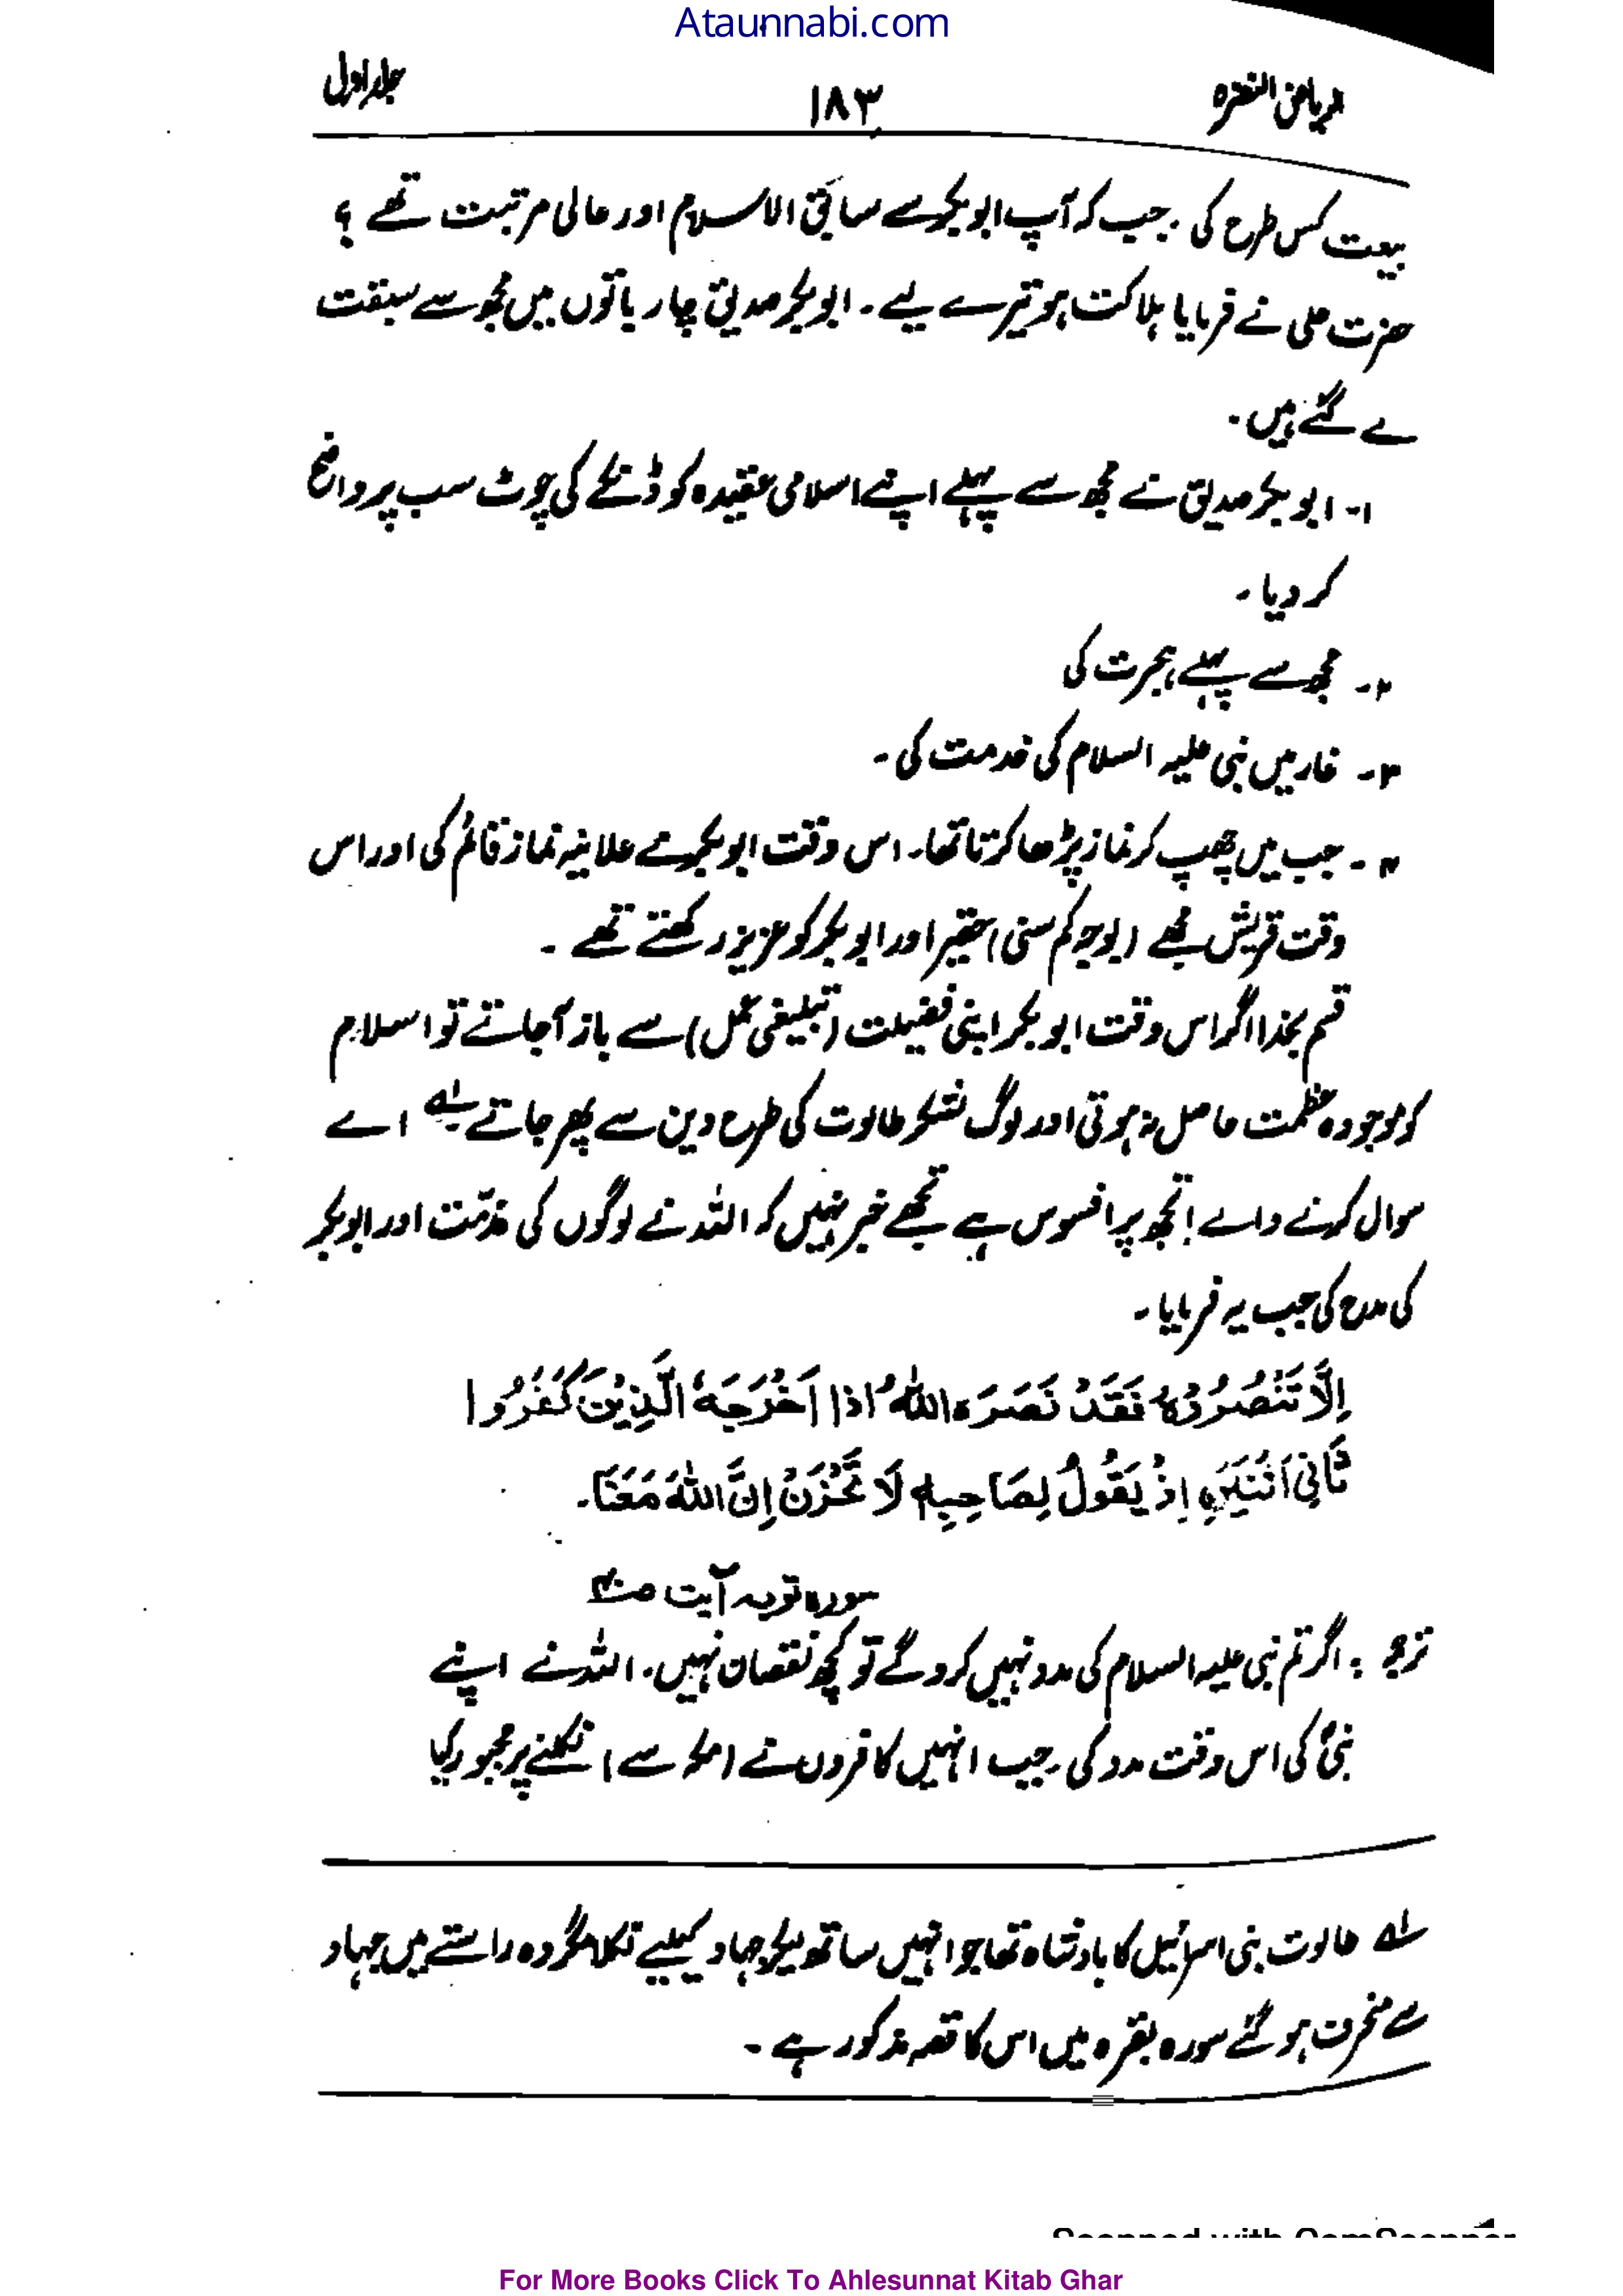 Ataunnabi.com
ریاض النضرہ ۱۸۳ جلد اول
بیعت کس طرح کی جب کہ آپ ابوبکر سے سابق الاسلام اور عالی مرتبت تھے ؟
حضرت علی نے فرمایا ہلاکت ہو تیرے لیے ۔ ابوبکر صدیق چار باتوں میں مجھ سے سبقت
لے گئے ہیں ۔
۱۔ ابوبکر صدیق نے مجھ سے پہلے اپنے اسلامی عقیدہ کو ڈنکے کی چوٹ سب پر واضح
کر دیا ۔
۲۔ مجھ سے پہلے ہجرت کی
۳۔ غار میں نبی علیہ السلام کی خدمت کی ۔
۴۔ جب میں چھپ کر نماز پڑھا کرتا تھا۔ اس وقت ابوبکر نے علانیہ نماز قائم کی اور اس
وقت قریش مجھے (بوجہ کم سنی) حقیر اور ابوبکر کو عزیز رکھتے تھے ۔
قسم بخدا اگر اس وقت ابوبکر اپنی فضیلت (تبلیغی عمل) سے باز آجاتے تو اسلام
کو موجودہ عظمت حاصل نہ ہوتی اور لوگ لشکر طالوت کی طرح دین سے پھر جاتے لہ اے
سوال کرنے والے ! تجھ پر افسوس ہے تجھے خبر نہیں کہ اللہ نے لوگوں کی مذمّت اور ابوبکر
کی مدح کی جب یہ فرمایا ۔
اِلَّا تَنْصُرُوْهُ فَقَدْ نَصَرَهُ اللّٰهُ اذا اَخْرَجَهُ الَّذِيْنَ كَفَرُوا
ثَانِیَ اثْنَيْنِ اِذْ يَقُوْلُ لِصَاحِبِهٖ لَا تَحْزَنْ اِنَّ اللّٰهَ مَعَنَا۔
سورہ توبہ آیت ۴۰
ترجمہ : اگر تم نبی علیہ السلام کی مدد نہیں کرو گے تو کچھ نقصان نہیں ۔ اللہ نے اپنے
نبی کی اس وقت مدد کی جب انہیں کافروں نے (مکہ سے) نکلنے پر مجبور کیا
لہ طالوت بنی اسرائیل کا بادشاہ تھا جو انہیں ساتھ لیکر جہاد کیلیے نکلا مگر وہ راستے میں جہاد
سے منحرف ہو گئے سورہ بقرہ میں اس کا قصہ مذکور ہے ۔
Scanned with CamScanner
For More Books Click To Ahlesunnat Kitab Ghar